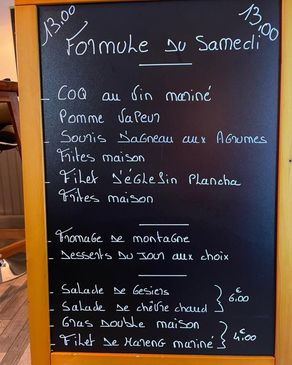 13,00
13,00
Formule Du Samedi
- COQ au Vin mariné
Pomme Vapeur
- Souris D'agneau aux Agrumes
Frites maison
- Filet D'églefin Plancha
Frites maison
- Fromage De montagne
- Desserts Du Jour aux choix
- Salade De Gesiers
- Salade De chèvre chaud
6.00 €
- Gras Double maison
- Filet De Hareng mariné
4.00 €